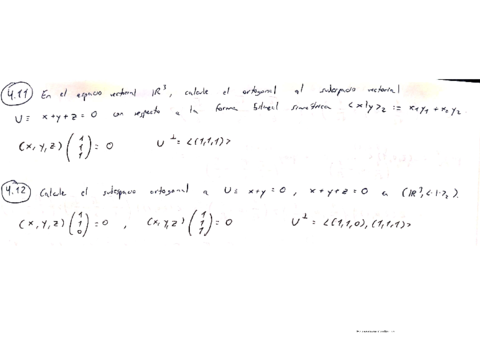 4.11 En el espacio vectorial ℝ³, calcule el ortogonal al subespacio vectorial
U ≡ x+y+z=0 con respecto a la forma bilineal simétrica <x|y>₂ := x₁y₁+x₂y₂
(x,y,z) (1 1 1) = 0 U⊥ = <(1,1,1)>
4.12 Calcule el subespacio ortogonal a U ≡ x+y=0, x+y+z=0 en (ℝ³,<·|·>₂).
(x,y,z) (1 1 0) = 0, (x,y,z) (1 1 1) = 0 U⊥ = <(1,1,0),(1,1,1)>